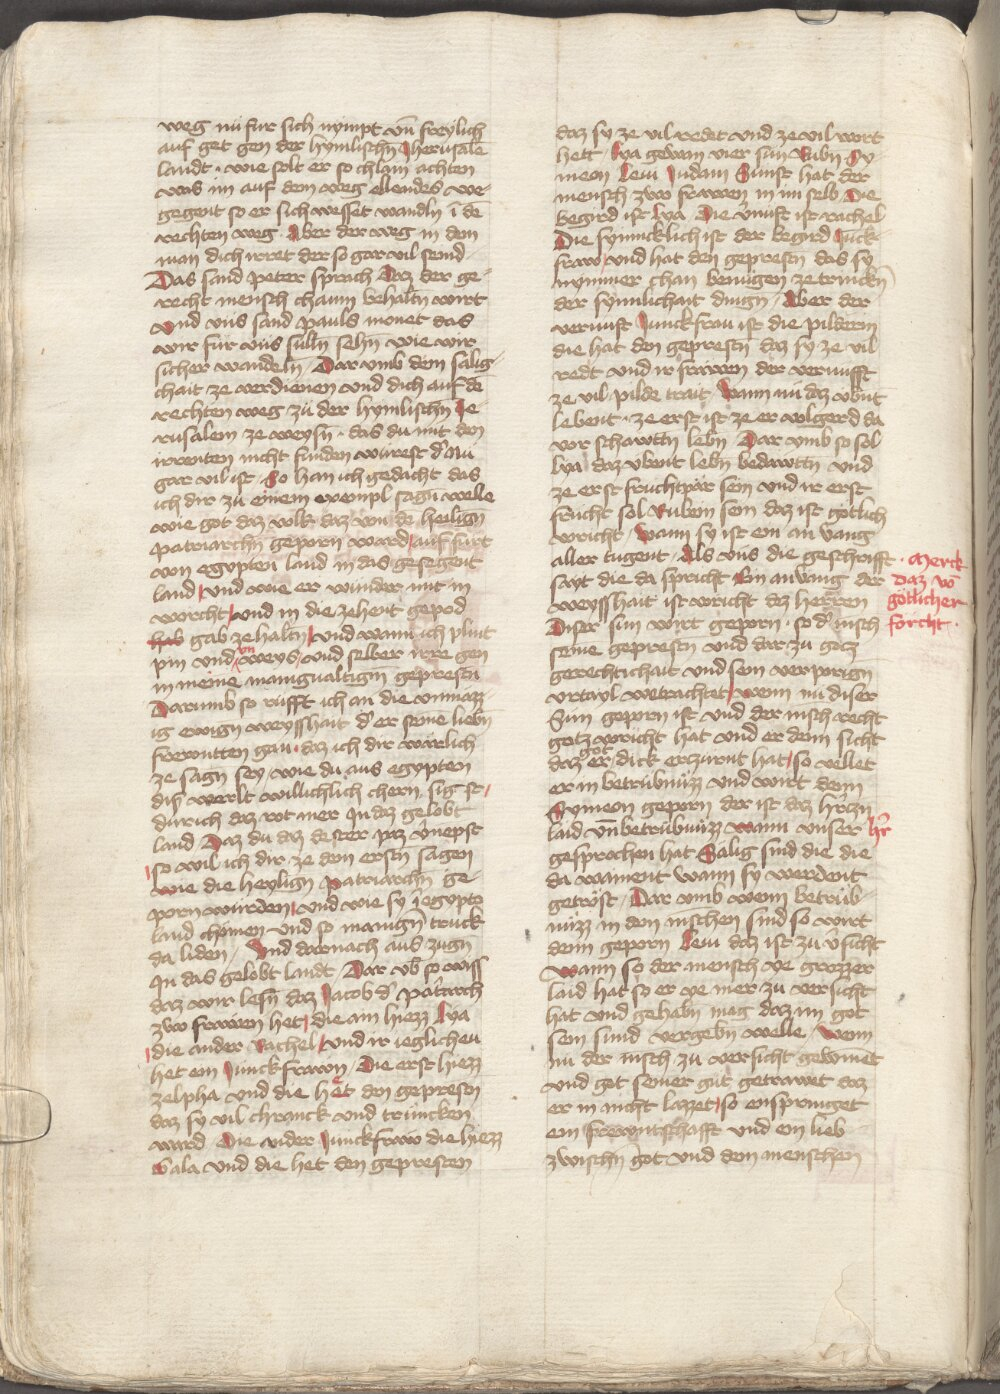 weg nu fur sich nympt vn̄ freylich
auf get gen der hymlischn̄ Jherusalē
landt · wie solt er so chlain achten
was im auf dem weg ellendes we-
gegent so er sich wesset wandln̄ ī dē
rechten weg · Aber der weg in dem
man dich irret der so gar vil seind
Das sand peter sprach Daz der ge-
recht mensch chaum behaltn̄ wirt
vnd vns sand pauls monet das
wir fur vns sulln̄ sehn wie wir
sicher wandeln / Dar vmb dem sälig
chait ze verdienen vnd dich auf dē
rechten weg zu der hymlischn̄ Je-
rusalem ze weysn̄ · das du mit den
irrenten nicht funden wurest d' nu
gar vil ist · So han ich gedacht das
ich dir zu einem exempl sagn welle
wie got daz volk daz von dē heilign̄
patriarchn̄ geporn ward / auf furt
von egypten land in das gesegent
land / vnd wie er wunder mit in
worcht / vnd in die zehent gepod
hab gab ze haltn̄ / vnd wann ich plint
pin vnd vn weys vnd selber irre gen
in meine manigualtign̄ gepresn̄
Darumb so rüfft ich an die vnmäzz-
ig ewign weysshait d' er seine liebn̄
frewntten gan · daz ich dir wärlich
ze sagn sey / wie du aus egypten
diß werlt willichlich chern sigst /
durich daz rot mer Jn daz gelobt
land Daz du daz dester paz v'nepst
so wil ich dir ze dem erstn̄ sagen
wie die heylign̄ Patriarchn̄ ge-
porn wurden / vnd wie sy j egypto
land chomen vnd so manign̄ truck
da liden / Vnd darnach aus zugn
Jn das gelobt landt / Dar vb̄ so wiss
daz wir lesn̄ daz Jacob d' pat'iarch
zwo frawen het / die ain hiezz Lya
die ander Rachel / vnd ir ieglicheu
het ein Junckfrawn / Die erst hiezz
zelpha vnd die het den gepresen
daz sy vil chranck vnd truncken
ward Die ander Junckfraw die hiezz
Bala vnd die het den gepresten
daz sy ze vil redet vnd ze vil wort
hett / Lya gewan vier sün Rubn̄ Sy
meon Leui Judam Sunst hat der
mensch zwo frawen in im selb Die
begird ist Lya Die v'nuft ist rachel
Die synnicklich ist der begird Junck-
fraw / vnd hat den gepresn̄ das sy
nymmer chan benügen ze trinckn̄
der synnlichait dingn / Aber der
vernuft Junckfrau ist die pilderin
die hat den gepresn̄ daz sy ze vil
redt vnd ir frawen der vernufft
ze vil pilde trait / Wann nu daz vbūt
lebent · ze erst ist ze er volgerd da
vor schawttn̄ lebn̄ Dar vmb so sol
lya daz vbent lebn̄ bedawttn̄ vnd
ze erst fruchtpär sein vnd ir erst
frucht sol Rubem sein daz ist götlich
voricht / Wann sy ist ein an vang
aller tugent / Als vns die geschrifft
sayt die da spricht Ein anvang der
weysshait ist voricht dez herren
Diser sun wirt geporn · so d' m̄sch
seine gepresn̄ vnd dar zu gotz
gerechtichait vnd sein verporign
vrtayl wetrachtet / wenn nu diser
Sun geporn ist vnd der m̄sch recht
gotz voricht hat vnd er denn sicht
daz er got dick erzurnt hat / so vellet
er in betrübnüzz vnd wirt denn
Symeon geporn der ist daz hrczn̄
laid vn̄ betrübnüzz wann vnser h'r
gesprochen hat Sälig sind die die
da wainent wann sy werdent
getröst / Dar vmb wenn betrüb-
nüzz in dem m̄schen sind so wirt
denn geporn Leui daz ist zu v'sicht
Wann so der mensch ye grözzer
laid hat so er ye mer zu versicht
hat vnd gehabn mag daz im got
sein sünd vergebn welle / Wenn
nu der m̄sch zu versicht gewinnet
vnd got seiner güt getrawet daz
er in nicht lazzet / so enspringet
ein frewntschafft vnd ein lieb
zwischn̄ got vnd dem menschen
· Merck
daz vō
götlicher
forcht ·